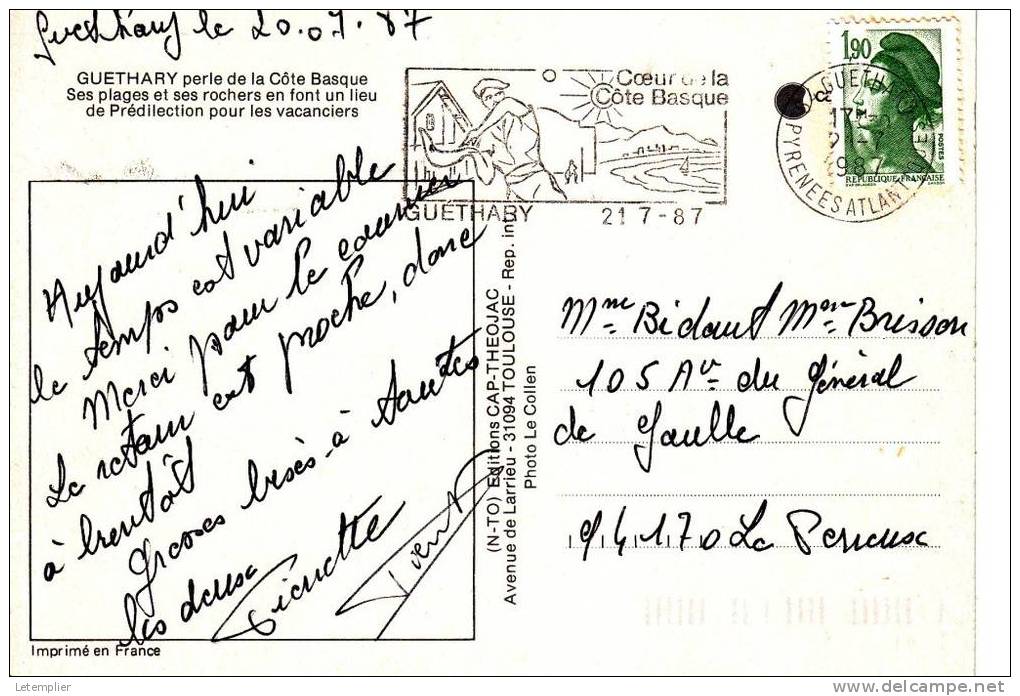 Guethary le 20.07.87
GUETHARY perle de la Côte Basque
Ses plages et ses rochers en font un lieu
de Prédilection pour les vacanciers
Cœur de la
Côte Basque
GUETHARY 21 7-87
1,90
POSTES
REPUBLIQUE FRANÇAISE
GUETHARY
PYRENEES ATLANTIQUES
Aujourd'hui
le temps est variable
Merci pour le courrier
Le retour est proche, donc
à bientôt
Grosses bises à toutes
les deux
Pierrette
(N-TO) Editions CAP-THEOJAC
Avenue de Larrieu - 31094 TOULOUSE - Rep. int.
Photo Le Collen
Mme Bidaut Mme Brisson
105 Av. du Général
de Gaulle
94170 Le Perreux
Imprimé en France
Letemplier
delcampe.net